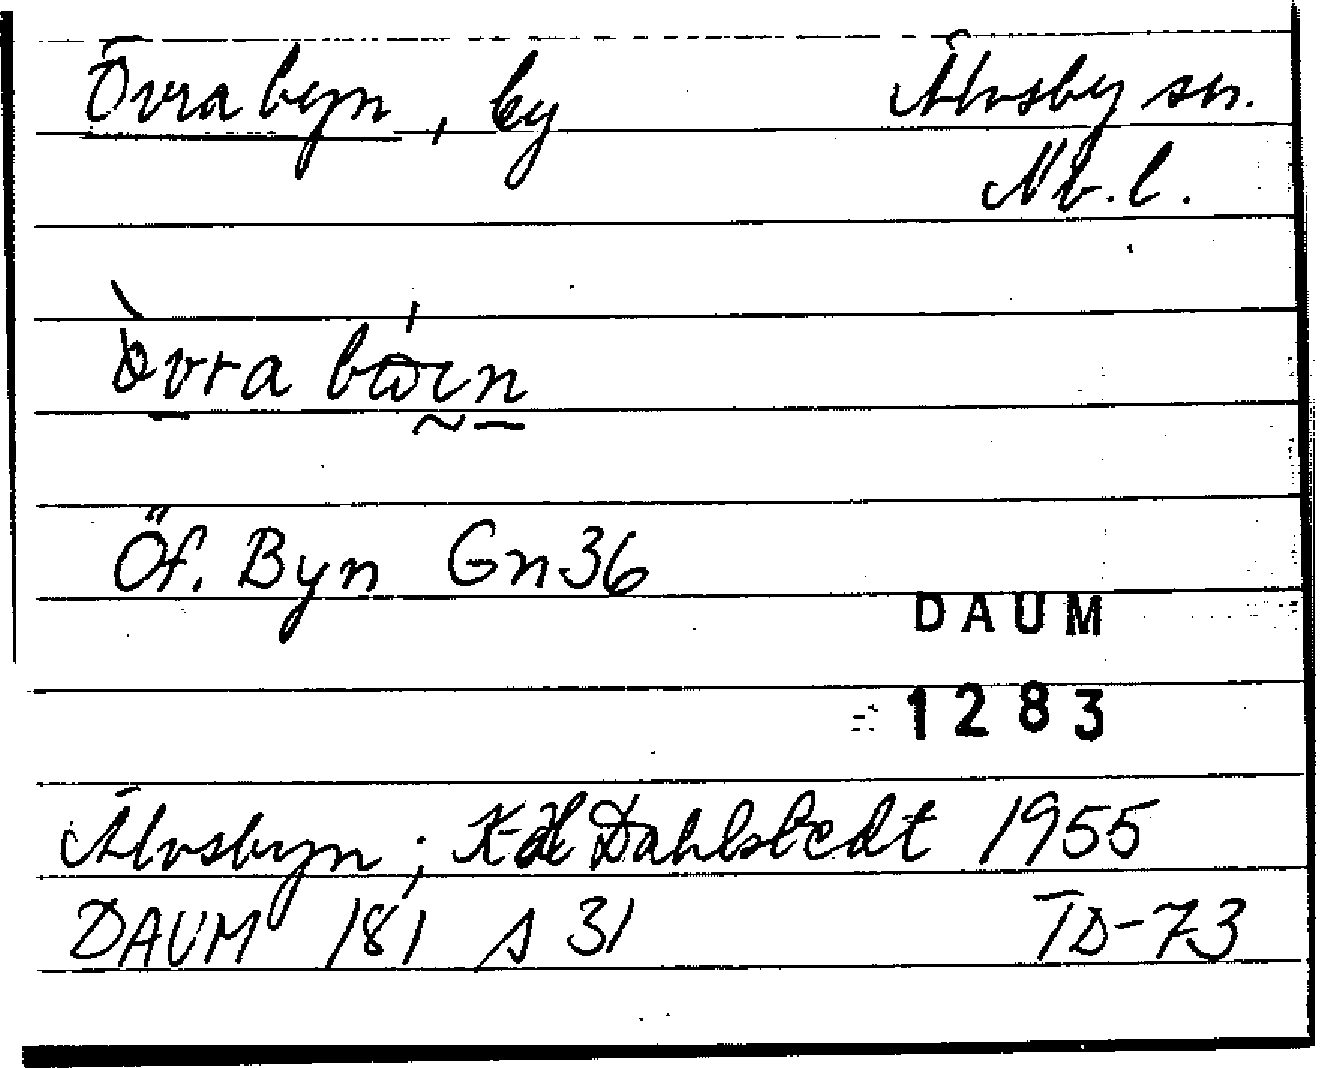 Övra byn, by Älvsby sn.
Nb. l.
Öf. Byn Gn36
DAUM
1283
Älvsbyn; K-H Dahlstedt 1955
DAUM 181 s 31 TD-73